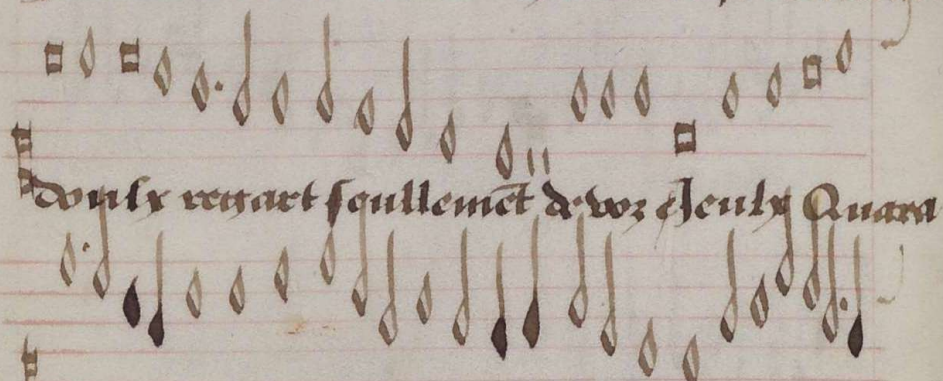 doulx regart seullemēt de voz yeulx Quara